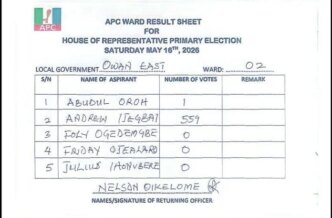 APC
APC WARD RESULT SHEET
FOR
HOUSE OF REPRESENTATIVE PRIMARY ELECTION
SATURDAY MAY 16TH, 2026
LOCAL GOVERNMENT OWAN EAST WARD: 02
S/N NAME OF ASPIRANT NUMBER OF VOTES REMARK
1 ABUDUL OROH 1
2 ANDREW 559
3 FOLY OGEDEMGBE 0
4 FRIDAY 0
5 JULIUS IHONVBERE 0
NELSON OIKELOME
NAMES/SIGNATURE OF RETURNING OFFICER